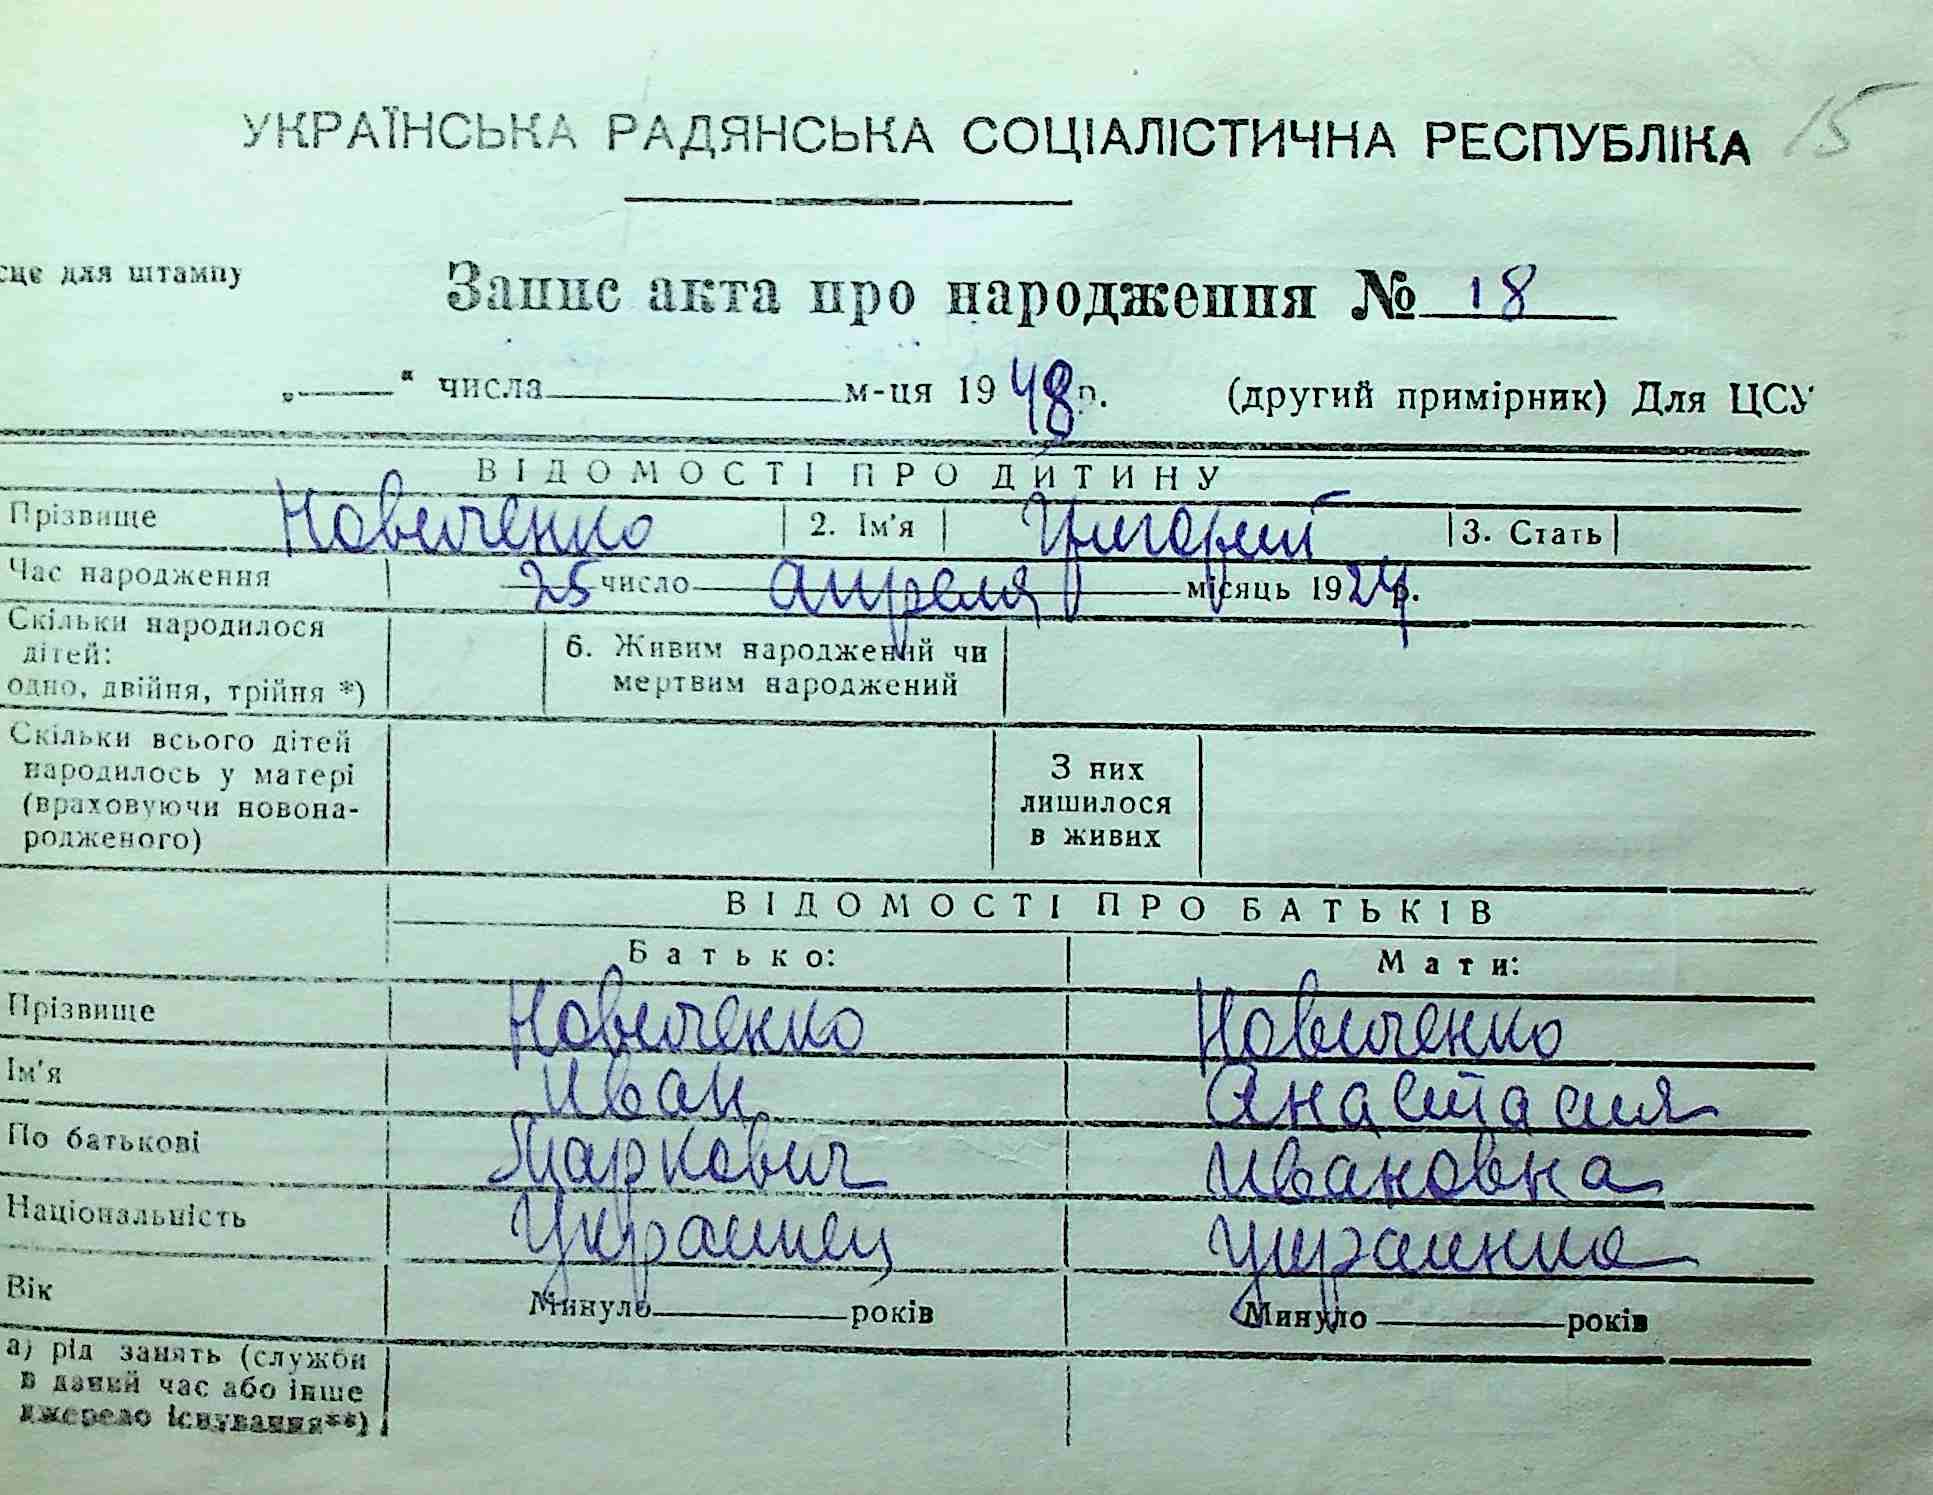 15
УКРАЇНСЬКА РАДЯНСЬКА СОЦІАЛІСТИЧНА РЕСПУБЛІКА
сце для штампу
Запис акта про народження № 18
„ “ числа м-ця 1948 р. (другий примірник) Для ЦСУ
ВІДОМОСТІ ПРО ДИТИНУ
Прізвище Новиченко 2. Ім'я Григорий 3. Стать
Час народження 25 число апреля місяць 1924 р.
Скільки народилося
дітей:
одно, двійня, трійня *)
6. Живим народжений чи
мертвим народжений
Скільки всього дітей
народилось у матері
(враховуючи новона-
родженого)
З них
лишилося
в живих
ВІДОМОСТІ ПРО БАТЬКІВ
Батько: Мати:
Прізвище Новиченко Новиченко
Ім'я Иван Анастасия
По батькові Маркович Ивановна
Національність Украинец Украинка
Вік Минуло років Минуло років
а) рід занять (служби
в даний час або інше
джерело існування**)